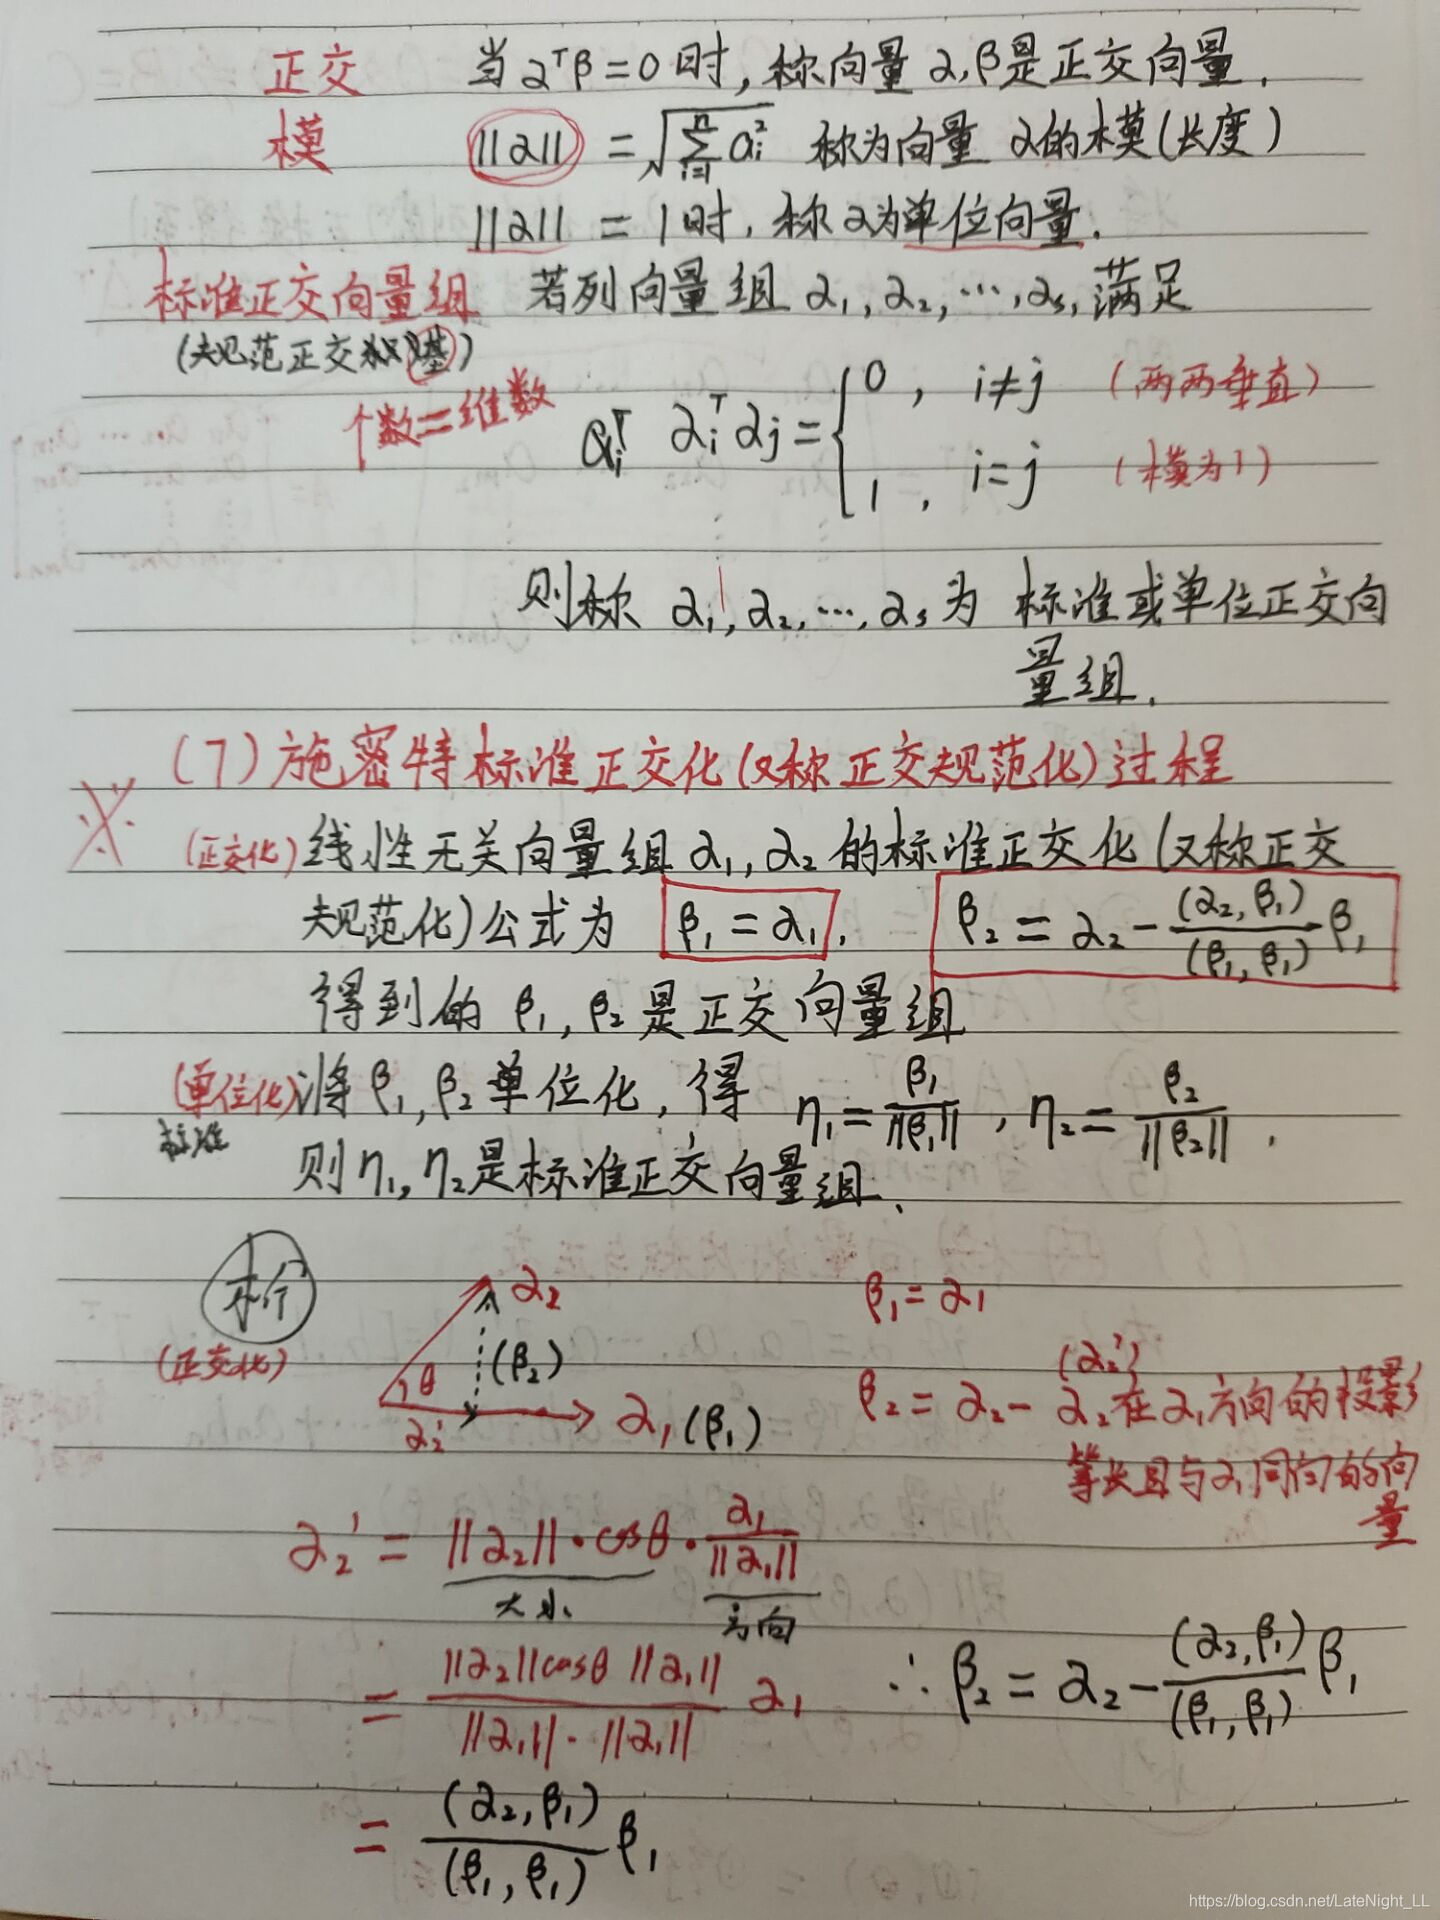 正交 当 α^Tβ=0时,称向量 α,β是正交向量.
模 ||α|| = √(∑_{i=1}^{n} a_i^2) 称为向量 α的模(长度)
||α|| = 1时,称α为单位向量.
标准正交向量组 若列向量组 α₁,α₂,…,αₛ,满足
(规范正交基)
个数=维数
a_i^T α_i^T α_j = { 0, i≠j (两两垂直)
1, i=j (模为1)
则称 α₁,α₂,…,αₛ为 标准或单位正交向
量组.
(7)施密特标准正交化(又称正交规范化)过程
※ (正交化) 线性无关向量组α₁,α₂的标准正交化(又称正交
规范化)公式为 β₁=α₁, β₂=α₂-\frac{(α₂,β₁)}{(β₁,β₁)}β₁
得到的 β₁,β₂是正交向量组
(单位化)将β₁,β₂单位化,得 η₁=\frac{β₁}{||β₁||}, η₂=\frac{β₂}{||β₂||}.
标准
则η₁,η₂是标准正交向量组.
α₂ β₁=α₁
(正交化) θ (β₂) (α₂')
α₂' α₁(β₁) β₂=α₂-α₂在α₁方向的投影
等长且与α₁同向的向
量
α₂' = ||α₂||·cosθ·\frac{α₁}{||α₁||}
大小 方向
= \frac{||α₂||cosθ ||α₁||}{||α₁||·||α₁||} α₁ ∴ β₂=α₂-\frac{(α₂,β₁)}{(β₁,β₁)}β₁
= \frac{(α₂,β₁)}{(β₁,β₁)}β₁
https://blog.csdn.net/LateNight_LL